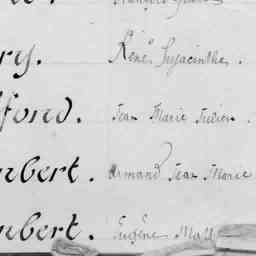 ry. René Hyacinthe.
ffond. Jean Marie Julien.
mbert. Armand Jean Marie
mbert. Eugène